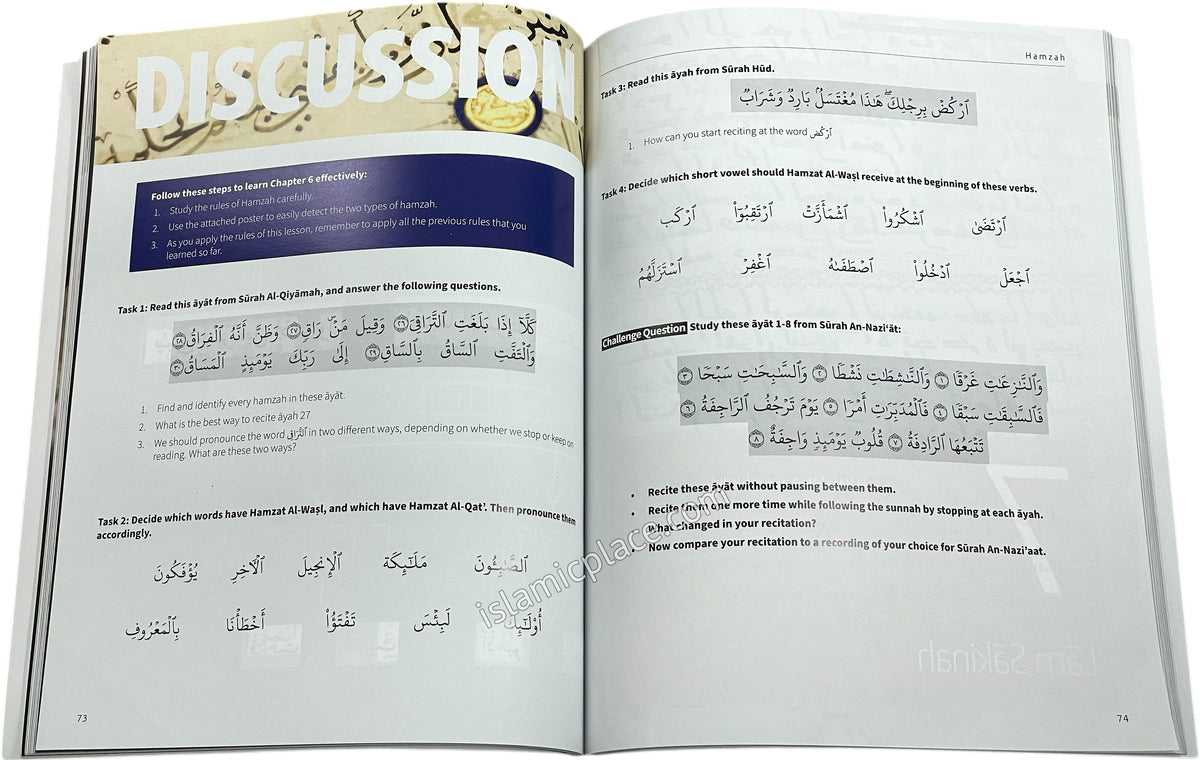 DISCUSSION
Follow these steps to learn Chapter 6 effectively:
1. Study the rules of Hamzah carefully.
2. Use the attached poster to easily detect the two types of hamzah.
3. As you apply the rules of this lesson, remember to apply all the previous rules that you
learned so far.
Task 1: Read this āyāt from Sūrah Al-Qiyāmah, and answer the following questions.
كَلَّآ إِذَا بَلَغَتِ ٱلتَّرَاقِيَ ٢٦ وَقِيلَ مَنْۜ رَاقٖ ٢٧ وَظَنَّ أَنَّهُ ٱلْفِرَاقُ ٢٨
وَٱلْتَفَّتِ ٱلسَّاقُ بِٱلسَّاقِ ٢٩ إِلَىٰ رَبِّكَ يَوْمَئِذٍ ٱلْمَسَاقُ ٣٠
1. Find and identify every hamzah in these āyāt.
2. What is the best way to recite āyah 27
3. We should pronounce the word in two different ways, depending on whether we stop or keep on
reading. What are these two ways?
Task 2: Decide which words have Hamzat Al-Waṣl, and which have Hamzat Al-Qaṭ'. Then pronounce them
accordingly.
ٱلصَّٰبِـُٔونَ مَلَٰٓئِكَة ٱلْإِنجِيلَ ٱلْأٓخِرِ يُؤْفَكُونَ
أُوْلَٰٓئِكَ لَبِئْسَ تَفْتَؤُا۟ أَخْطَأْنَا بِٱلْمَعْرُوفِ
73
Hamzah
Task 3: Read this āyah from Sūrah Hūd.
ٱرْكُضْ بِرِجْلِكَۖ هَٰذَا مُغْتَسَلُۢ بَارِدٞ وَشَرَابٞ
1. How can you start reciting at the word ٱرْكُضْ
Task 4: Decide which short vowel should Hamzat Al-Waṣl receive at the beginning of these verbs.
ٱرْتَضَىٰ ٱشْكُرُوا۟ ٱشْمَأَزَّتْ ٱرْتَقِبُوٓا۟ ٱرْكَب
ٱجْعَلْ ٱدْخُلُوا۟ ٱصْطَفَىٰهُ ٱغْفِرْ ٱسْتَزَلَّهُمُ
Challenge Question Study these āyāt 1-8 from Sūrah An-Nazi‘āt:
وَٱلنَّٰزِعَٰتِ غَرْقٗا ١ وَٱلنَّٰشِطَٰتِ نَشْطٗا ٢ وَٱلسَّٰبِحَٰتِ سَبْحٗا ٣
فَٱلسَّٰبِقَٰتِ سَبْقٗا ٤ فَٱلْمُدَبِّرَٰتِ أَمْرٗا ٥ يَوْمَ تَرْجُفُ ٱلرَّاجِفَةُ ٦
تَتْبَعُهَا ٱلرَّادِفَةُ ٧ قُلُوبٞ يَوْمَئِذٖ وَاجِفَةٌ ٨
• Recite these āyāt without pausing between them.
• Recite them one more time while following the sunnah by stopping at each āyah.
What changed in your recitation?
• Now compare your recitation to a recording of your choice for Sūrah An-Nazi'aat.
74
islamicplace.com